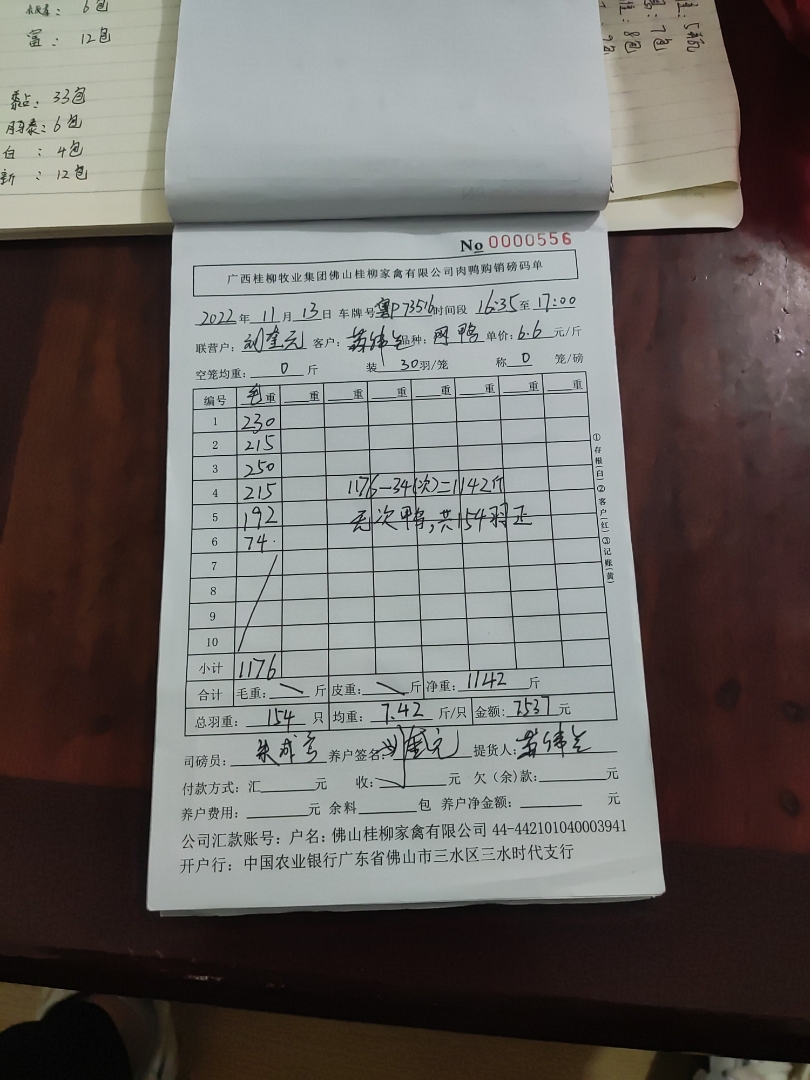 富：12包
黍占：33包
6包
白：4包
新：12包
No 0000556
广西桂柳牧业集团佛山桂柳家禽有限公司肉鸭购销磅码单
2022年11月13日 车牌号粤P73516时间段 16:35至17:00
联营户：刘奎元 客户：品种：网鸭 单价：6.6 元/斤
空笼均重：0斤 装30羽/笼 称0笼/磅
编号 毛重 重 重 重 重 重 重 重
1 230
2 215
3 250
4 215 1176-34(次)=1142斤
5 192 次鸭，共154羽正
6 74.
7
8
9
10
小计 1176
合计 毛重：斤 皮重：斤 净重：1142斤
总羽重：154只 均重：7.42斤/只 金额：7537元
①存根(白)②客户(红)③记账(黄)
司磅员： 养户签名：刘奎元 提货人：
付款方式：汇元 收：元 欠（余)款：元
养户费用：元 余料包 养户净金额：元
公司汇款账号：户名：佛山桂柳家禽有限公司 44-442101040003941
开户行：中国农业银行广东省佛山市三水区三水时代支行